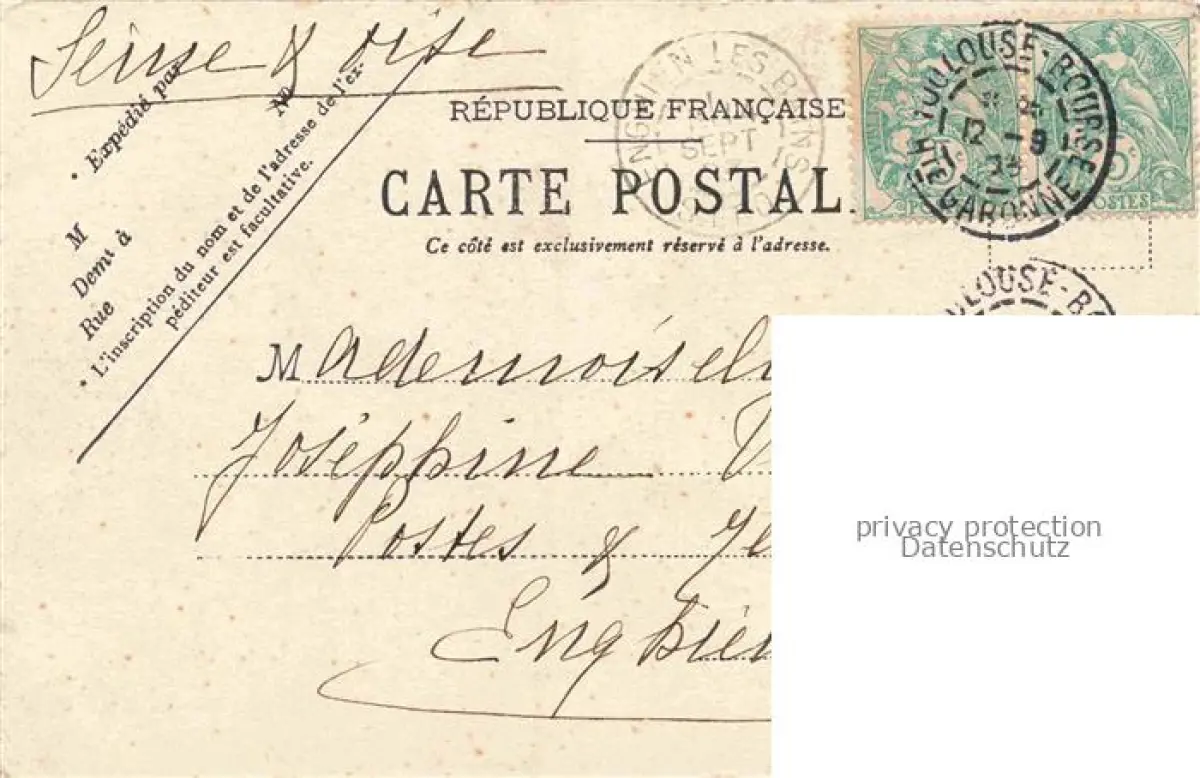 Seine & oise
RÉPUBLIQUE FRANÇAISE
CARTE POSTALE
Ce côté est exclusivement réservé à l'adresse.
• Expédié par
M
Demt à
Rue
No
• L'inscription du nom et de l'adresse de l'ex-
péditeur est facultative.
ENGHIEN LES BAINS
SEPT
TOULOUSE-BOURSE
12 -9
Hte GARONNE
5c
POSTES
TOULOUSE-BO
Mademoisel
Joséphine V
Postes & Te
Enghien
privacy protection
Datenschutz